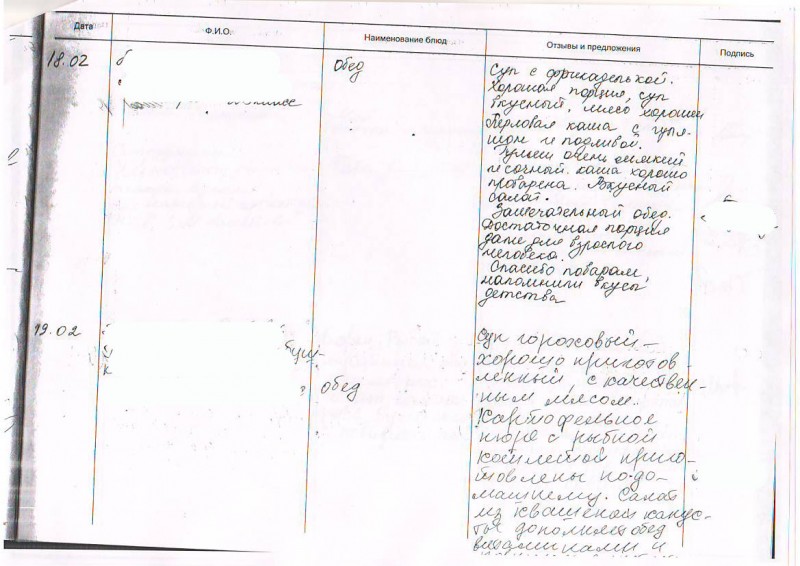 Дата Ф.И.О. Наименование блюд Отзывы и предложения Подпись
18.02 обед Суп с фрикаделькой.
Хорошая порция, суп
вкусный, мясо хорошее
Перловая каша с гуля-
шом и подливой.
Гуляш очень мягкий
и сочный. каша хорошо
проварена. Вкусный
салат.
Замечательный обед.
Достаточная порция
даже для взрослого
человека.
Спасибо поварам,
напомнили вкусы
детства
19.02 обед Суп гороховый –
хорошо приготов-
ленный, с качествен-
ным мясом.
Картофельное
пюре с рыбной
котлетой приго-
товлены по-до-
машнему. Салат
из квашеной капус-
ты дополняет обед
витаминами и